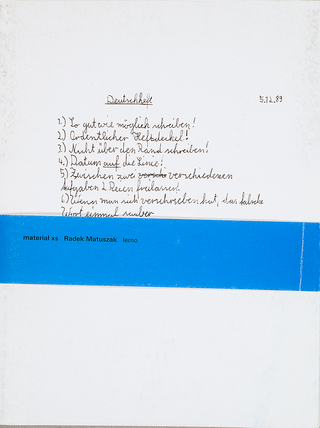 Deutschheft 5.12.89
1.) So gut wie möglich schreiben!
2) Ordentlicher Heftdeckel!
3.) Nicht über den Rand schreiben!
4.) Datum auf die Linie!
5) Zwischen zwei verschiedenen
Aufgaben 2 Reihen freilassen!
6) Wenn man sich verschrieben hat, das falsche
Wort einmal sauber
material xs Radek Matuszak lecno